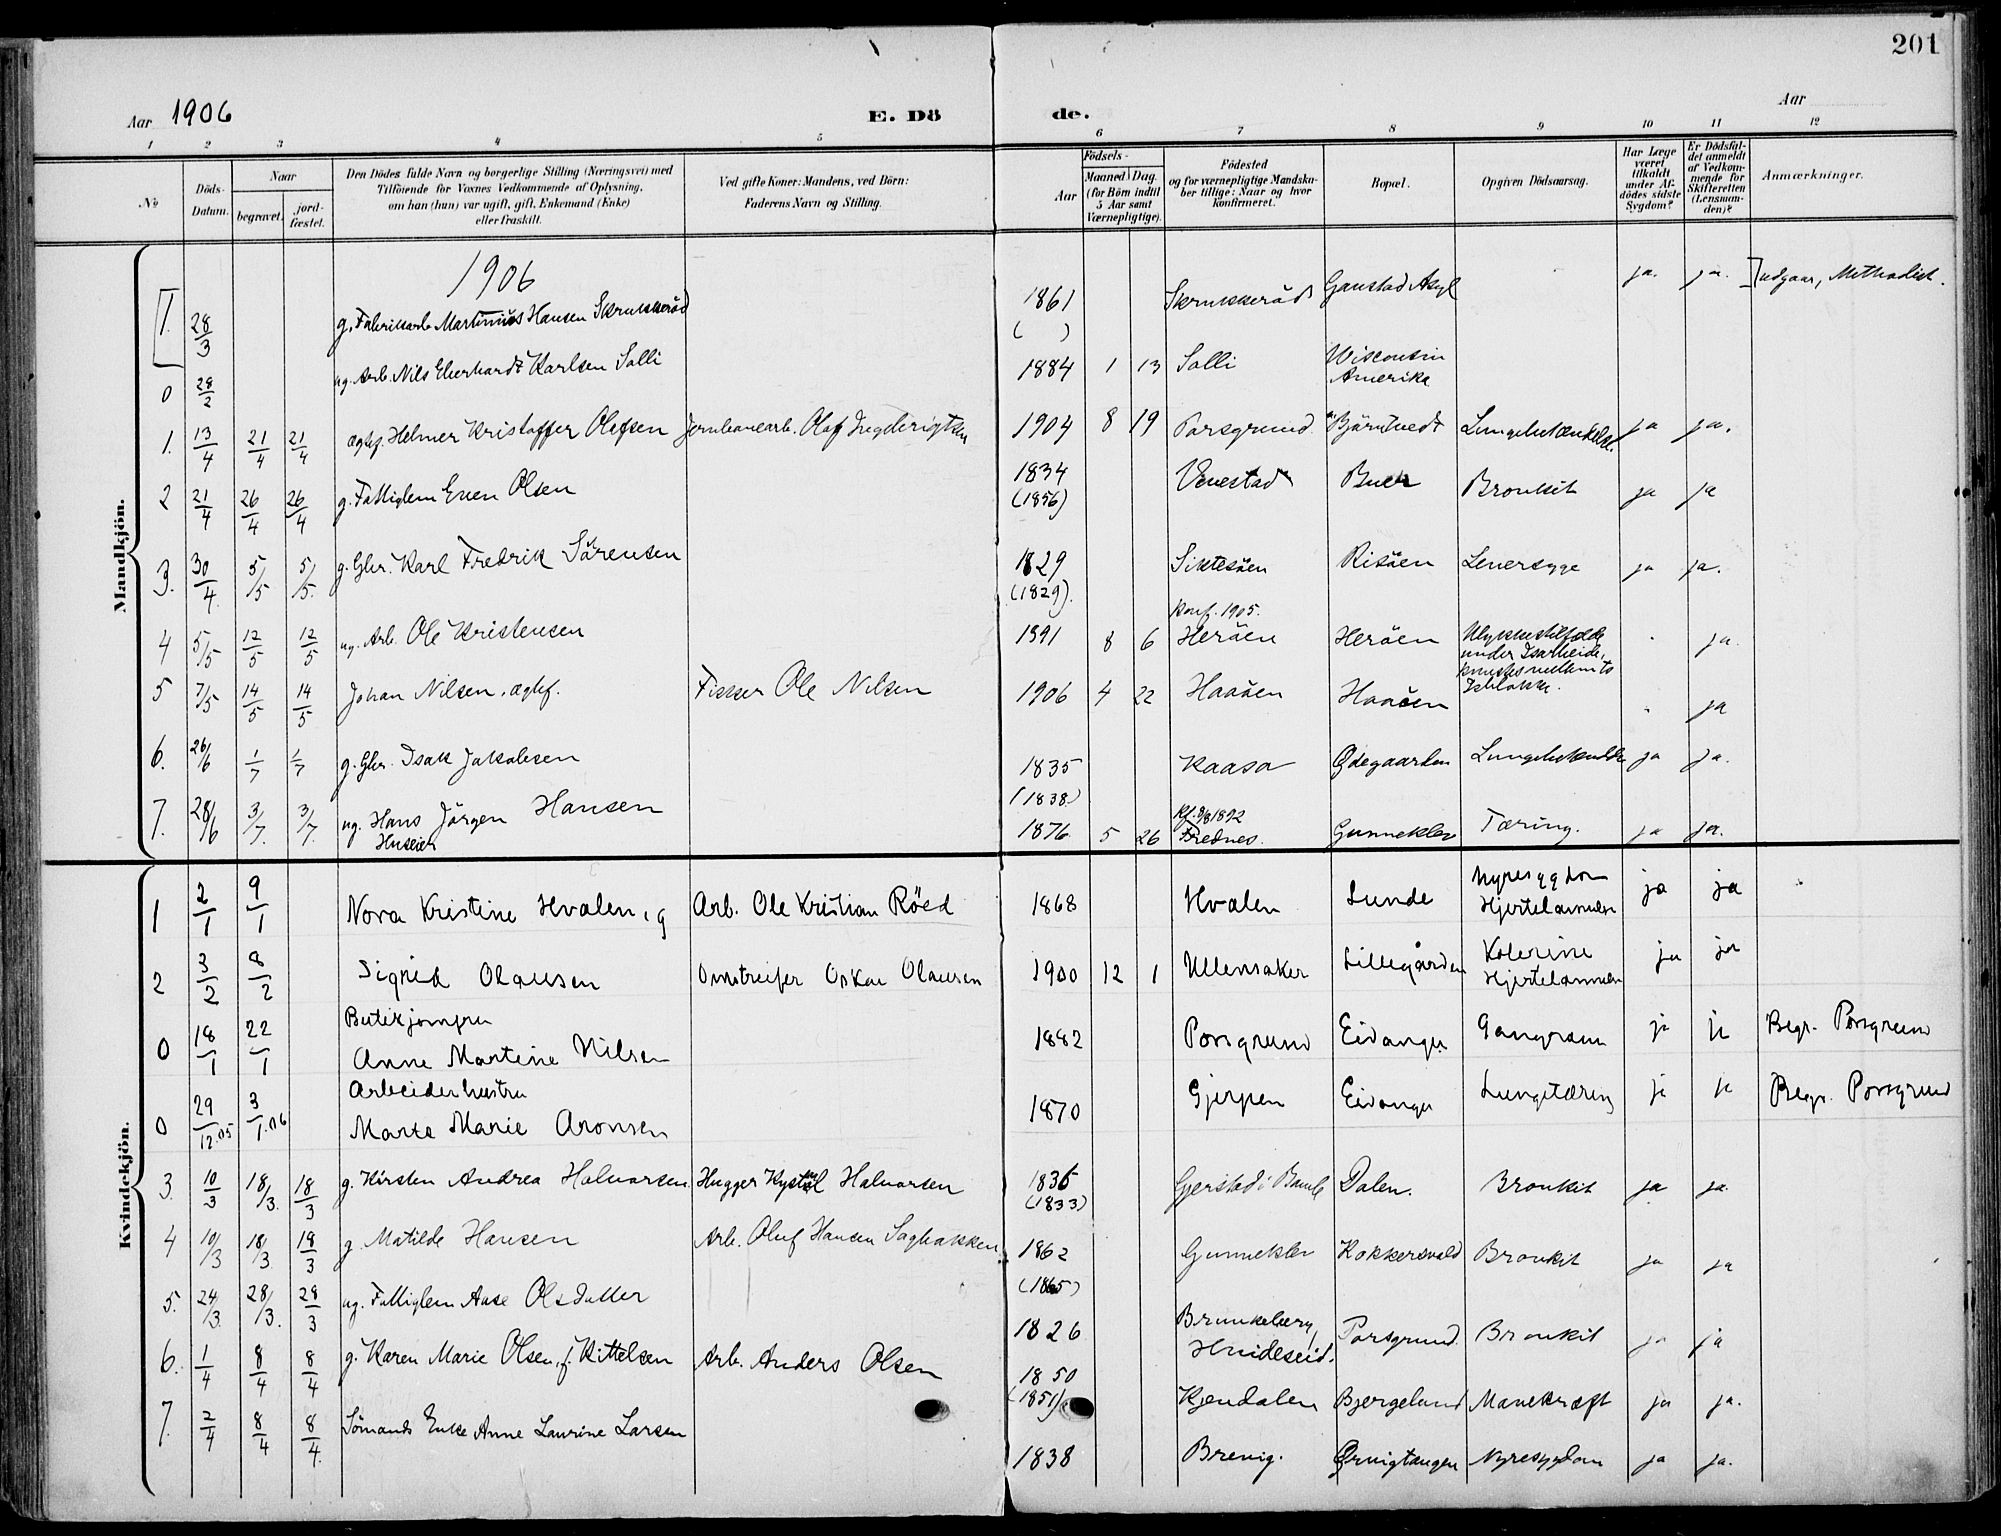 201
Aar 1906 E. Dö de. Aar
1 2 3 4 5 6 7 8 9 10 11 12
No
Döds-Datum.
Naar
begravet.
jord-fæstet.
Den Dödes fulde Navn og borgerlige Stilling (Næringsvei) med
Tilföiende for Voxnes Vedkommende af Oplysning,
om han (hun) var ugift, gift, Enkemand (Enke)
eller fraskilt.
Ved gifte Koner: Mandens, ved Börn:
Faderens Navn og Stilling.
Födsels-
Aar
Maaned Dag.
(for Börn indtil
5 Aar samt
Værnepligtige).
Födested
og for værnepligtige Mandska-
ber tillige: Naar og hvor
konfirmeret.
Bopæl.
Opgiven Dödsaarsag.
Har Læge
været
tilkaldt
under Af-
dödes sidste
Sygdom?
Er Dödsfal-
det anmeldt
af Vedkom-
mende for
Skifteretten
(Lensman-
den)?
Anmærkninger.
Mandkjön.
1906
1. 28/3 g. Fabrikarb. Martinius Hansen Skrukkeröd 1861 ( ) Skrukkeröd Gaustad Asyl ja. ja. udgaar, Methodist.
0 28/2 ug. Arb. Nils Eberhardt Karlsen Salli 1884 1 13 Salli Wisconsin
Amerika
1. 13/4 21/4 21/4 ægtef. Helmer Kristoffer Olefsen Jernbanearb. Olaf 1904 8 19 Porsgrund Björntvedt Lungebetændelse. ja ja.
2 21/4 26/4 26/4 g. Fattiglem Even Olsen 1834 (1856) Venestad Buer Bronkit ja ja
3. 30/4 5/5 5/5 g. Gbr. Karl Fredrik Sörensen 1829 (1829) Siktesöen Risöen Leversyge ja ja.
4 5/5 12/5 12/5 ug. Arb. Ole Kristensen 1891 8 6 Konf. 1905. Heröen Heröen Ulykkestilfælde
under Isarbeide,
knustes mellem to
Isblokke. ja.
5 7/5 14/5 14/5 Johan Nilsen, ægtef. Fisker Ole Nilsen 1906 4 22 Haaöen Haaöen ja
6. 26/6 1/7 1/7 g. Gbr. Isak Jakobsen 1835 (1838) Kaasa Ødegaarden ja ja.
7. 28/6 3/7 3/7 ug. Hans Jörgen Hansen 1876 5 26 Kf. 1892 Frednes. Gunneklev Tæring. ja ja.
Kvindekjön.
1 2/1 9/1 Nora Kristine Hvalen, g Arb. Ole Kristian Röed 1868 Hvalen Lunde Nyresygdom
Hjertelammelse ja ja
2 3/2 8/2 Sigrid Olausen Omstreifer Oskar Olausen 1900 12 1 Ullensaker Lillegården Kolerine
Hjertelammelse ja ja
Butikjomfru
0 18/1 22/1 Anne Martine Nilsen 1882 Porsgrund Eidanger Gangræn ja ja Begr. Porsgrund
Arbeiderhustru
0 29/12.05 3/1.06 Marte Marie Aronsen 1870 Gjerpen Eidanger Lungetæring ja ja Begr. Porsgrund
3. 10/3 18/3. 18/3 g. Kirsten Andrea Halvorsen Hugger Halvorsen 1835 (1833) Gjerstad i Bamle Dalen. Bronkit ja ja
4 10/3 18/3 18/3 g. Matilde Hansen Arb. Oluf Hansen Sagbakken 1862 (1865) Gunneklev Kokkersvold Bronkit ja ja
5. 24/3. 28/3. 28/3 ug. Fattiglem Aase Olsdatter 1826 Brunkeberg,
Hvideseid. Porsgrund. Bronkit ja ja
6. 1/4 8/4 8/4 g. Karen Marie Olsen, f. Kittelsen Arb. Anders Olsen 1850 (1851) Kjendalen Bjergeland Mavekræft ja ja.
7. 2/4 8/4 8/4. Sömands Enke Anne Laurine Larsen 1838 Brevig. Ørvigtangen Nyresygdom ja ja.